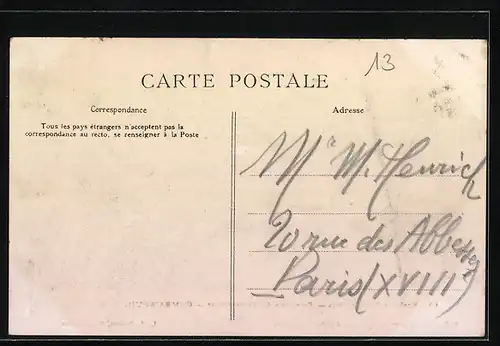 13
CARTE POSTALE
Correspondance
Tous les pays étrangers n'acceptent pas la
correspondance au recto, se renseigner à la Poste
Adresse
Mr M. Henrich
20 rue des Abbesses
Paris (XVIIIe)